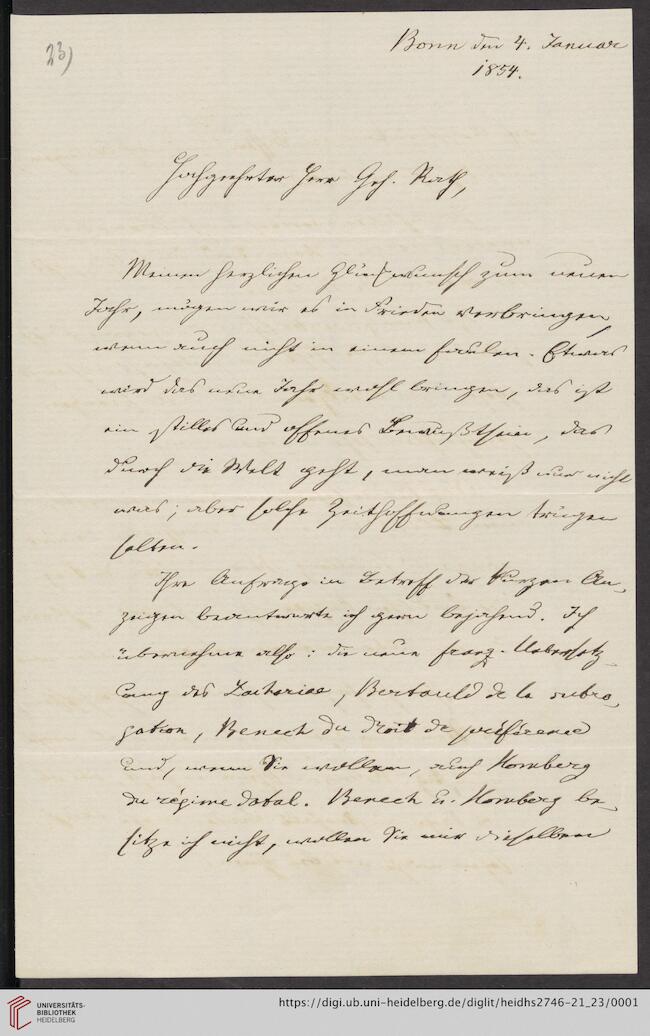 23)
Bonn den 4. Januar
1854.
Hochgeehrter Herr Geh. Rath,
Meinen herzlichen Glückwunsch zum neuen
Jahr, mögen wir es in Frieden verbringen
wenn auch nicht in einem faulen. Etwas
wird das neue Jahr wohl bringen, das ist
ein stilles und offenes Bewußtsein, das
durch die Welt geht, man weiß nur nicht
was; aber solche Zeithoffnungen trügen
selten.
Ihre Anfrage in Betreff der kurzen An-
zeigen beantworte ich gern bejahend. Ich
übernehme also: die neue franz. Uebersetz-
ung des Zachariae, Bertauld de la subro-
gation, Benech du droit de préférence
und, wenn Sie wollen, auch Homberg
du régime dotal. Benech u. Homberg be-
sitze ich nicht, wollen Sie mir dieselben
UNIVERSITÄTS-
BIBLIOTHEK
HEIDELBERG
https://digi.ub.uni-heidelberg.de/diglit/heidhs2746-21_23/0001